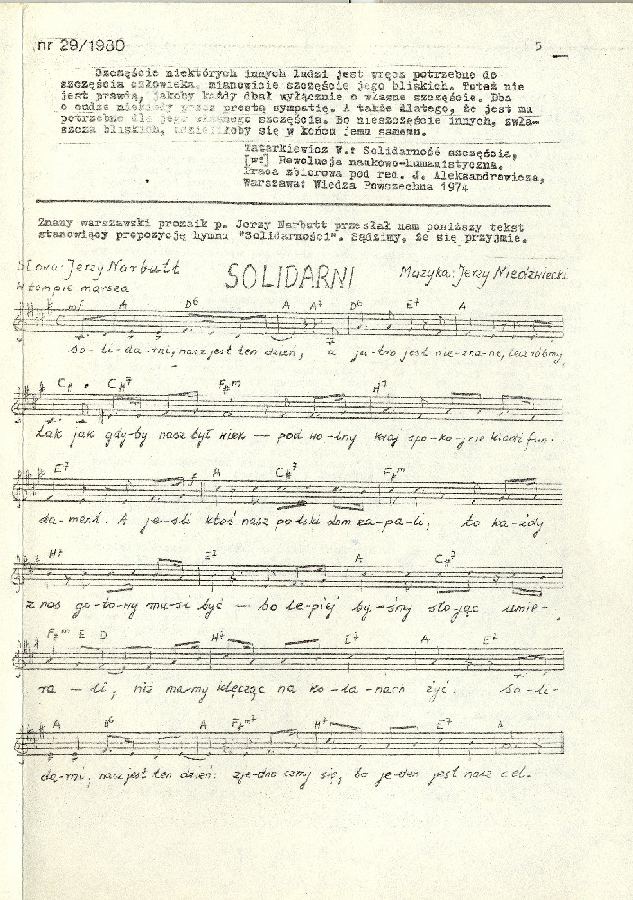 nr 29/1980 5
Szczęście niektórych innych ludzi jest wręcz potrzebne do
szczęścia człowieka, mianowicie szczęście jego bliskich. Toteż nie
jest prawdą, jakoby każdy dbał wyłącznie o własne szczęście. Dba
o cudze niekiedy przez prostą sympatię. A także dlatego, że jest mu
potrzebne dla jego własnego szczęścia. Bo nieszczęście innych, zwła-
szcza bliskich, udzieliłoby się w końcu jemu samemu.
Tatarkiewicz W.: Solidarność szczęścia,
[w:] Rewolucja naukowo-humanistyczna.
Praca zbiorowa pod red. J. Aleksandrowicza,
Warszawa: Wiedza Powszechna 1974
Znany warszawski prozaik p. Jerzy Narbutt przesłał nam poniższy tekst
stanowiący propozycję hymnu "Solidarności". Sądzimy, że się przyjmie.
Słowa: Jerzy Narbutt SOLIDARNI Muzyka: Jerzy Niedźwiecki
W tempie marsza
mf A D6 A A7 D6 E7 A
So-li-da-rni, nasz jest ten dzień, a ju-tro jest nie-zna-ne, lecz róbmy
C# C#7 F#m H7
tak jak gdy-by nasz był wiek — pod wo-lny kraj spo-ko-jnie kładź fun-
E7 A C#7 F#m
da-ment. A je-śli ktoś nasz polski dom za-pa-li, to ka-żdy
H7 E7 A C#7
z nas go-to-wy mu-si być — bo le-piej by-śmy stojąc umie-
F#m E D H7 E7 A E7
ra-li, niż mamy klęcząc na ko-la-nach żyć. So-li-
A D6 A F#m7 H7 E7 A
da-rni, nasz jest ten dzień: zje-dno-czmy się, bo je-den jest nasz cel.